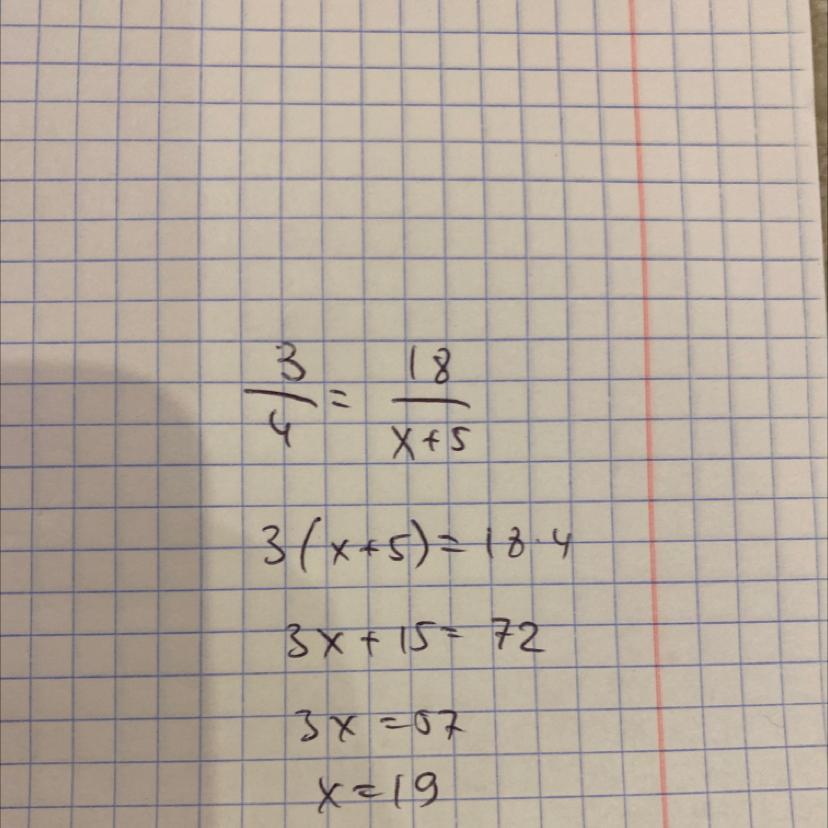 3/4 = 18/(x+5)
3(x+5)=18·4
3x+15=72
3x=57
x=19